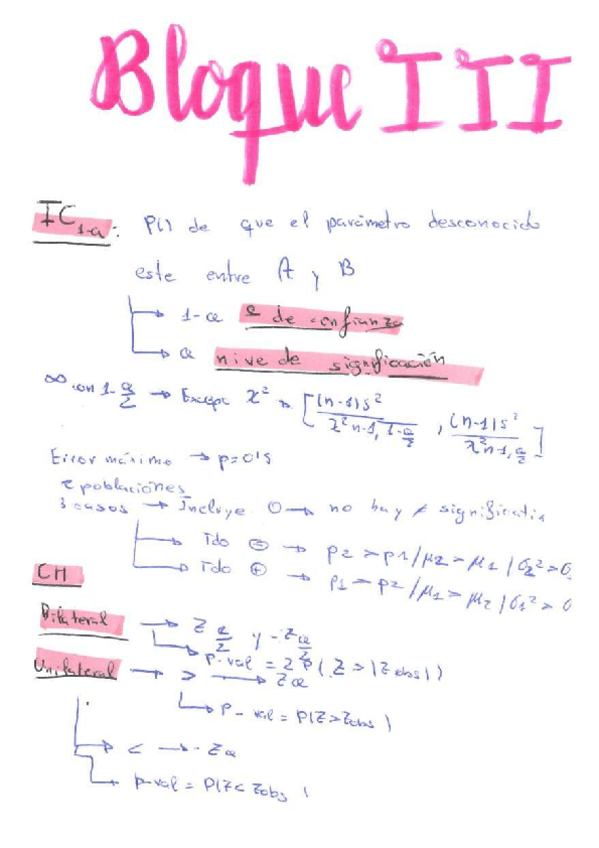 Bloque III
IC 1-α: P() de que el parámetro desconocido
este entre A y B
→ 1-α c de confianza
→ α nivel de significación
∞ con 1-α/2 → Except χ² → [(n-1)s²/χ²n-1,1-α/2 , (n-1)s²/χ²n-1,α/2]
Error máximo → p=0'5
2 poblaciones
3 casos → Incluye 0 → no hay ≠ significativa
→ Tdo ⊖ → p2 > p1 / μ2 > μ1 / σ2² > σ
→ Tdo ⊕ → p1 > p2 / μ1 > μ2 / σ1² > σ
CH
Bilateral → Z α/2 y -Z α/2
→ p-val = 2 P(Z > |Zobs|)
Unilateral → > → Zα
→ p-val = P(Z > Zobs)
→ < → -Zα
→ p-val = P(Z < Zobs)